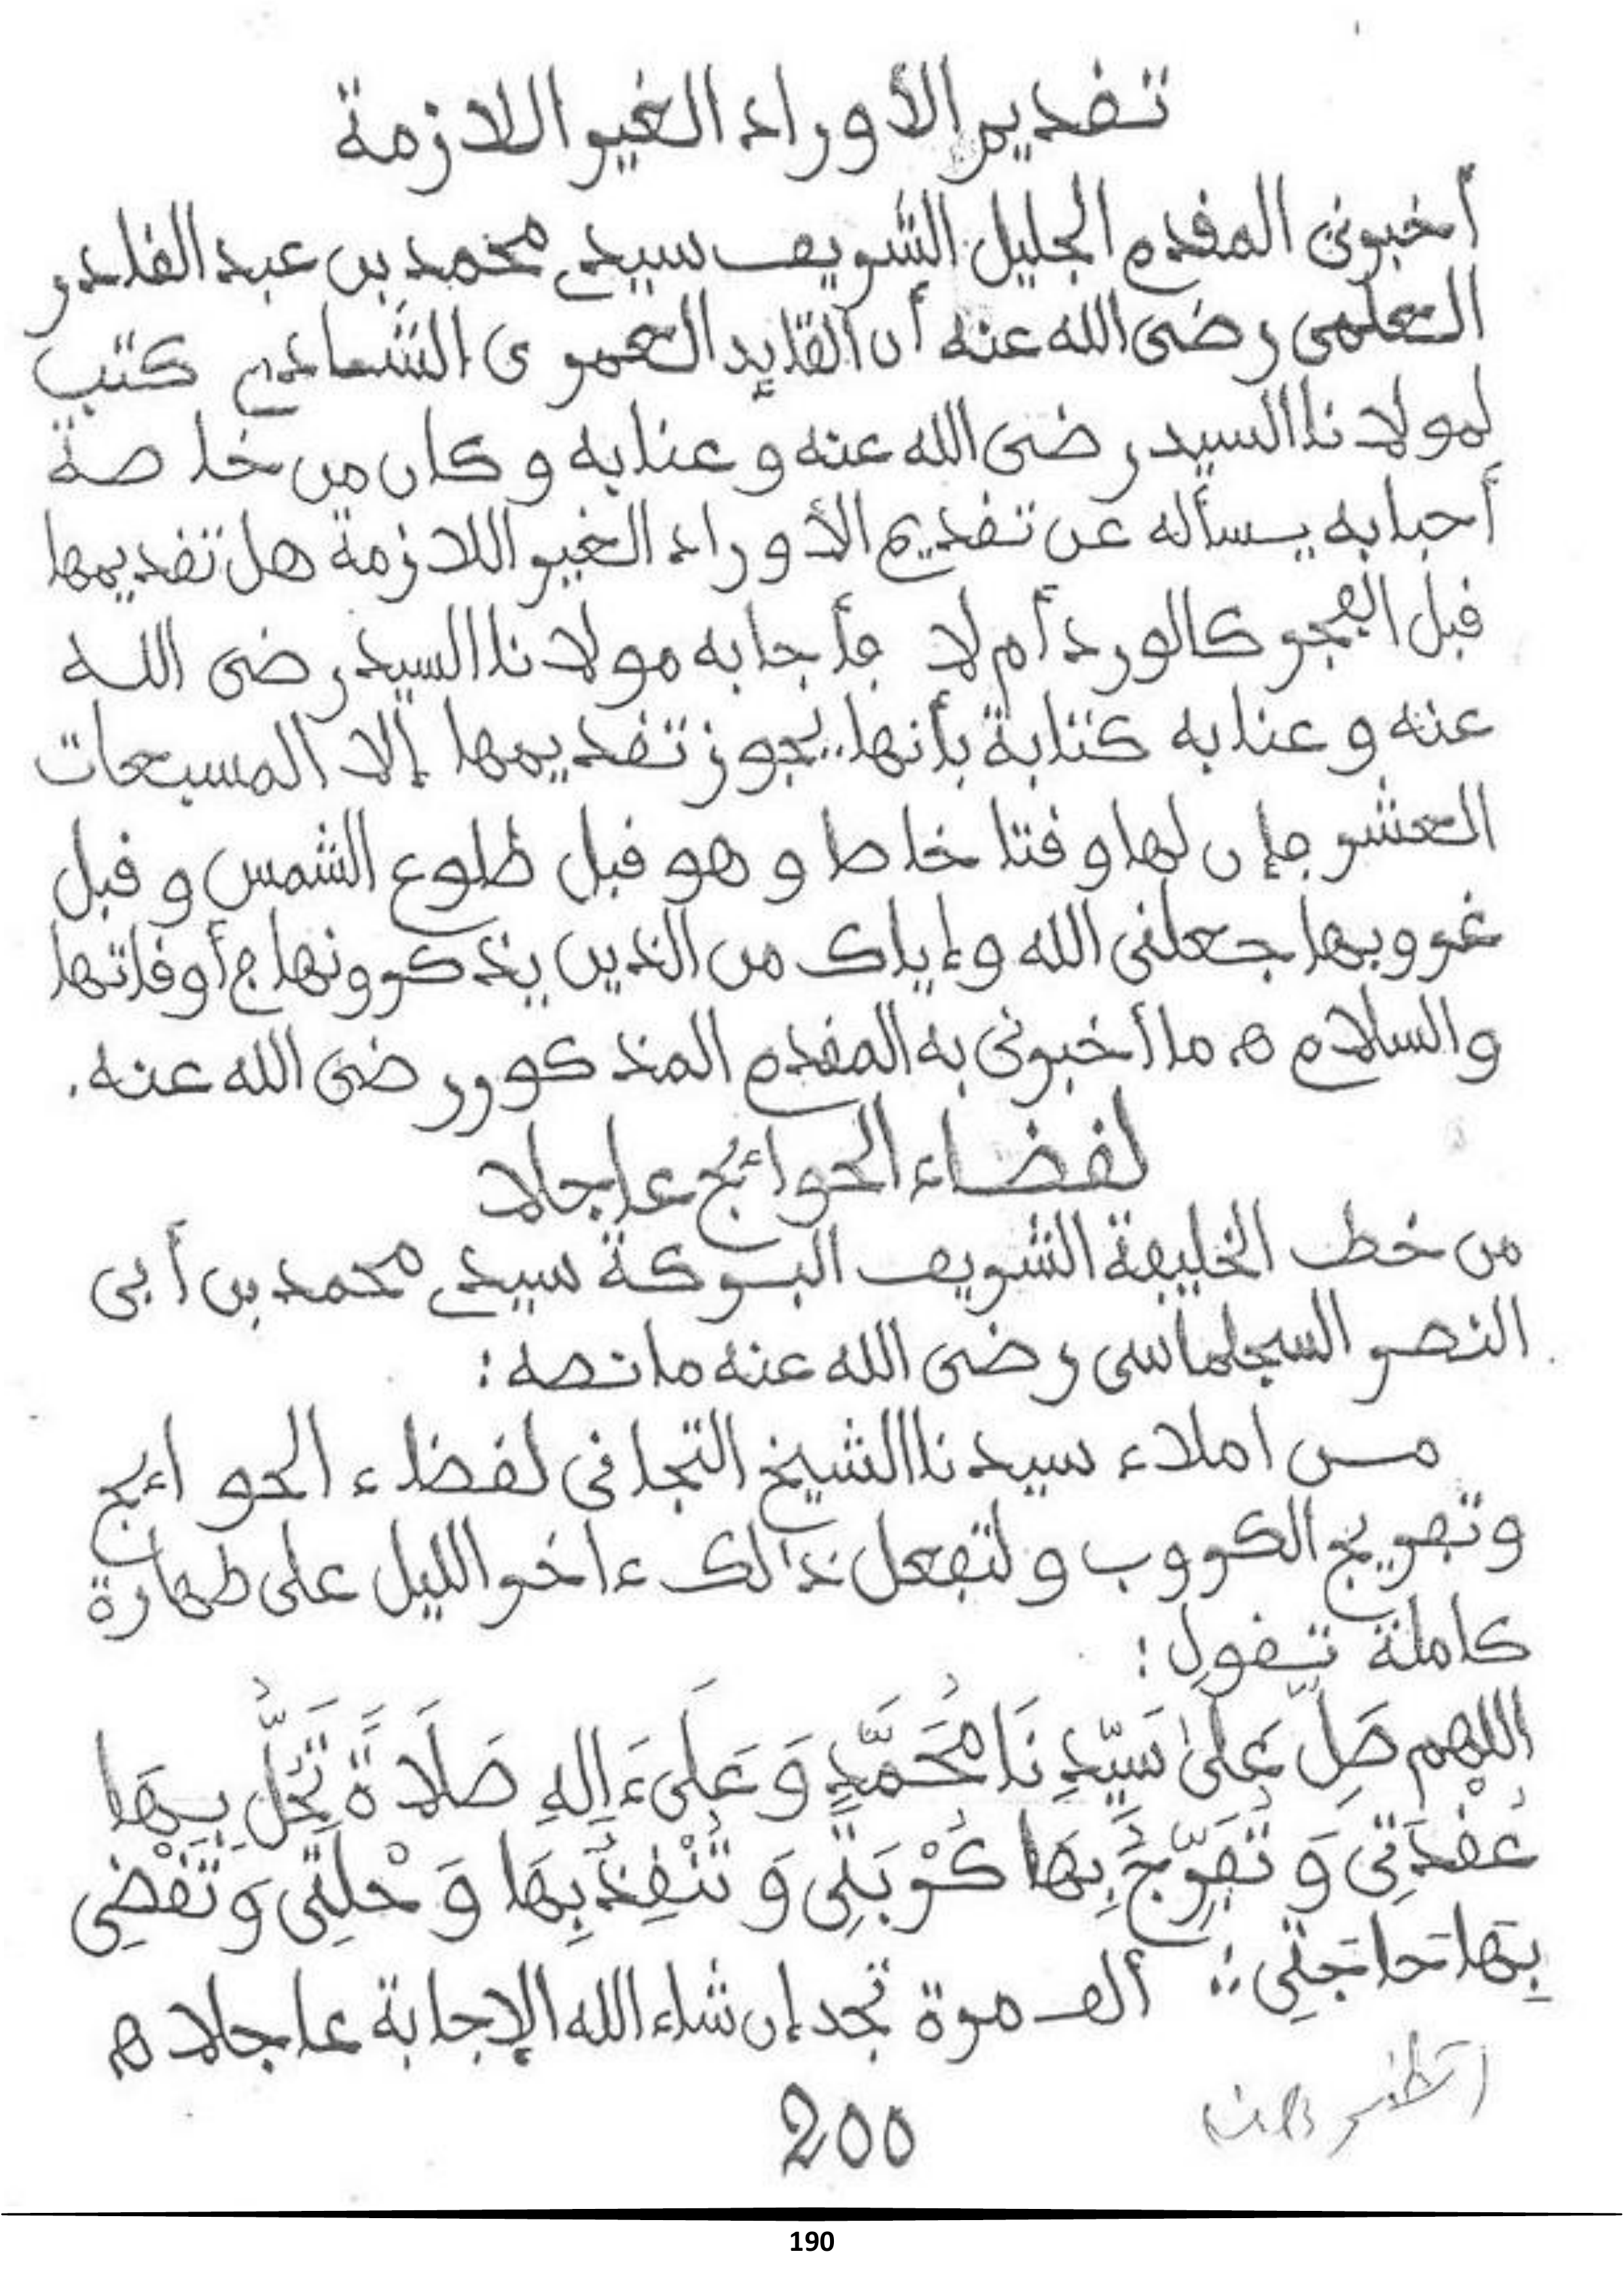 تقديم الأوراد الغير اللازمة
أخبرني المقدم الجليل الشريف سيدي محمد بن عبد القادر
العلمي رضى الله عنه أن القايد العمري الشاذي كتب
لمولانا السيد رضى الله عنه وعنا به وكان من خاصة
أحبابه يسأله عن تقديم الأوراد الغير اللازمة هل تقديمها
قبل الفجر كالورد أم لا فأجابه مولانا السيد رضى الله
عنه وعنا به كتابة بأنها يجوز تقديمها إلا المسبعات
العشر فإن لها وقتا خاصا وهو قبل طلوع الشمس وقبل
غروبها جعلني الله وإياك من الذين يذكرونها في أوقاتها
والسلام ه ما أخبرني به المقدم المذكور رضى الله عنه.
لقضاء الحوائج عاجلا
من خط الخليفة الشريف البركة سيدي محمد بن أبى
النصر السجلماسى رضى الله عنه ما نصه :
من املاء سيدنا الشيخ التجانى لقضاء الحوائج
وتفريج الكروب ولتفعل ذالك ءاخر الليل على طهارة
كاملة تقول :
اللهم صَلِّ عَلىٰ سَيِّدِنَا مُحَمَّدٍ وَعَلَىٰ ءَالِهِ صَلَاةً تَحُلُّ بِهَا
عُقْدَتِي وَتُفَرِّجُ بِهَا كُرْبَتِي وَتُنْقِذُ بِهَا وَحْلَتِي وَتَقْضِي
بِهَا حَاجَتِي :: ألف مرة تجد إن شاء الله الإجابة عاجلا ه
200
190